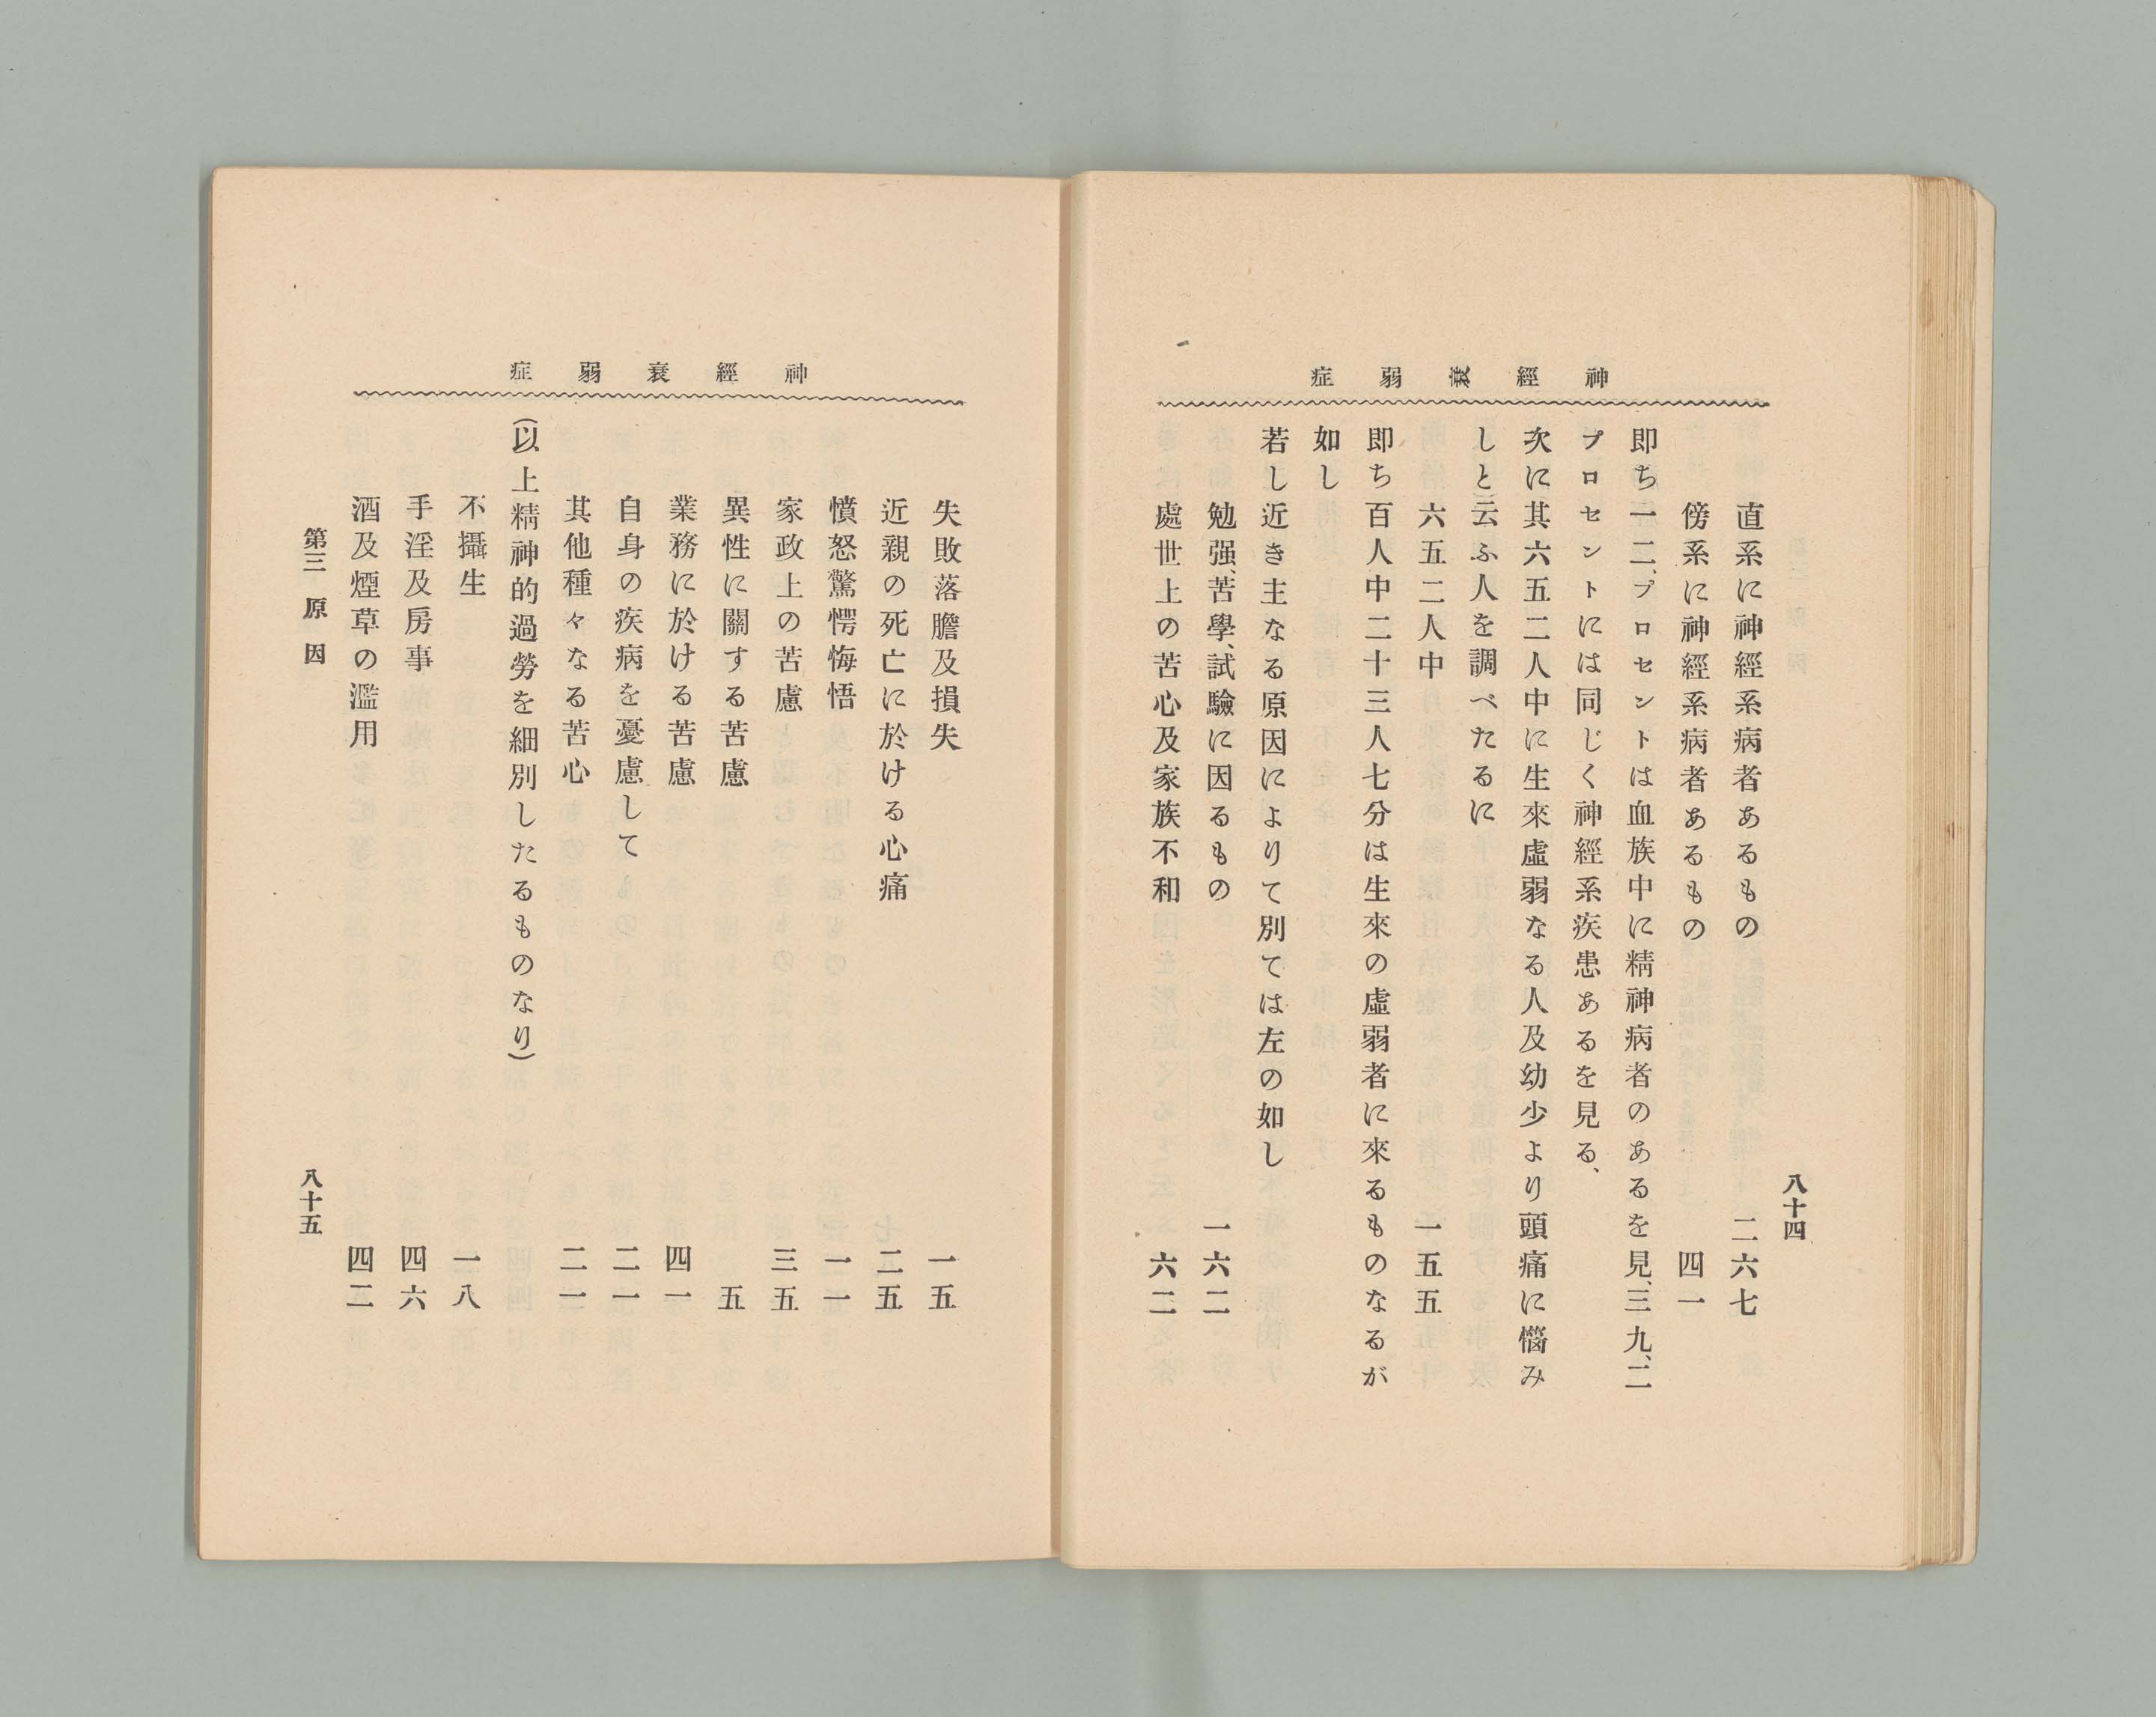 神經衰弱症
八十四
直系に神經系病者あるもの 二六七
傍系に神經系病者あるもの 四一
即ち一二、プロセントは血族中に精神病者のあるを見、三九、二
プロセントには同じく神經系疾患あるを見る、
次に其六五二人中に生來虛弱なる人及幼少より頭痛に惱み
しと云ふ人を調べたるに
六五二人中 一五五
即ち百人中二十三人七分は生來の虛弱者に來るものなるが
如し
若し近き主なる原因によりて別ては左の如し
勉强、苦學、試驗に因るもの 一六二
處世上の苦心及家族不和 六二
神經衰弱症
失敗落膽及損失 一五
近親の死亡に於ける心痛 二五
憤怒驚愕悔悟 一一
家政上の苦慮 三五
異性に關する苦慮 五
業務に於ける苦慮 四一
自身の疾病を憂慮して 二一
其他種々なる苦心 二一
(以上精神的過勞を細別したるものなり)
不攝生 一八
手淫及房事 四六
酒及煙草の濫用 四二
第三 原因
八十五